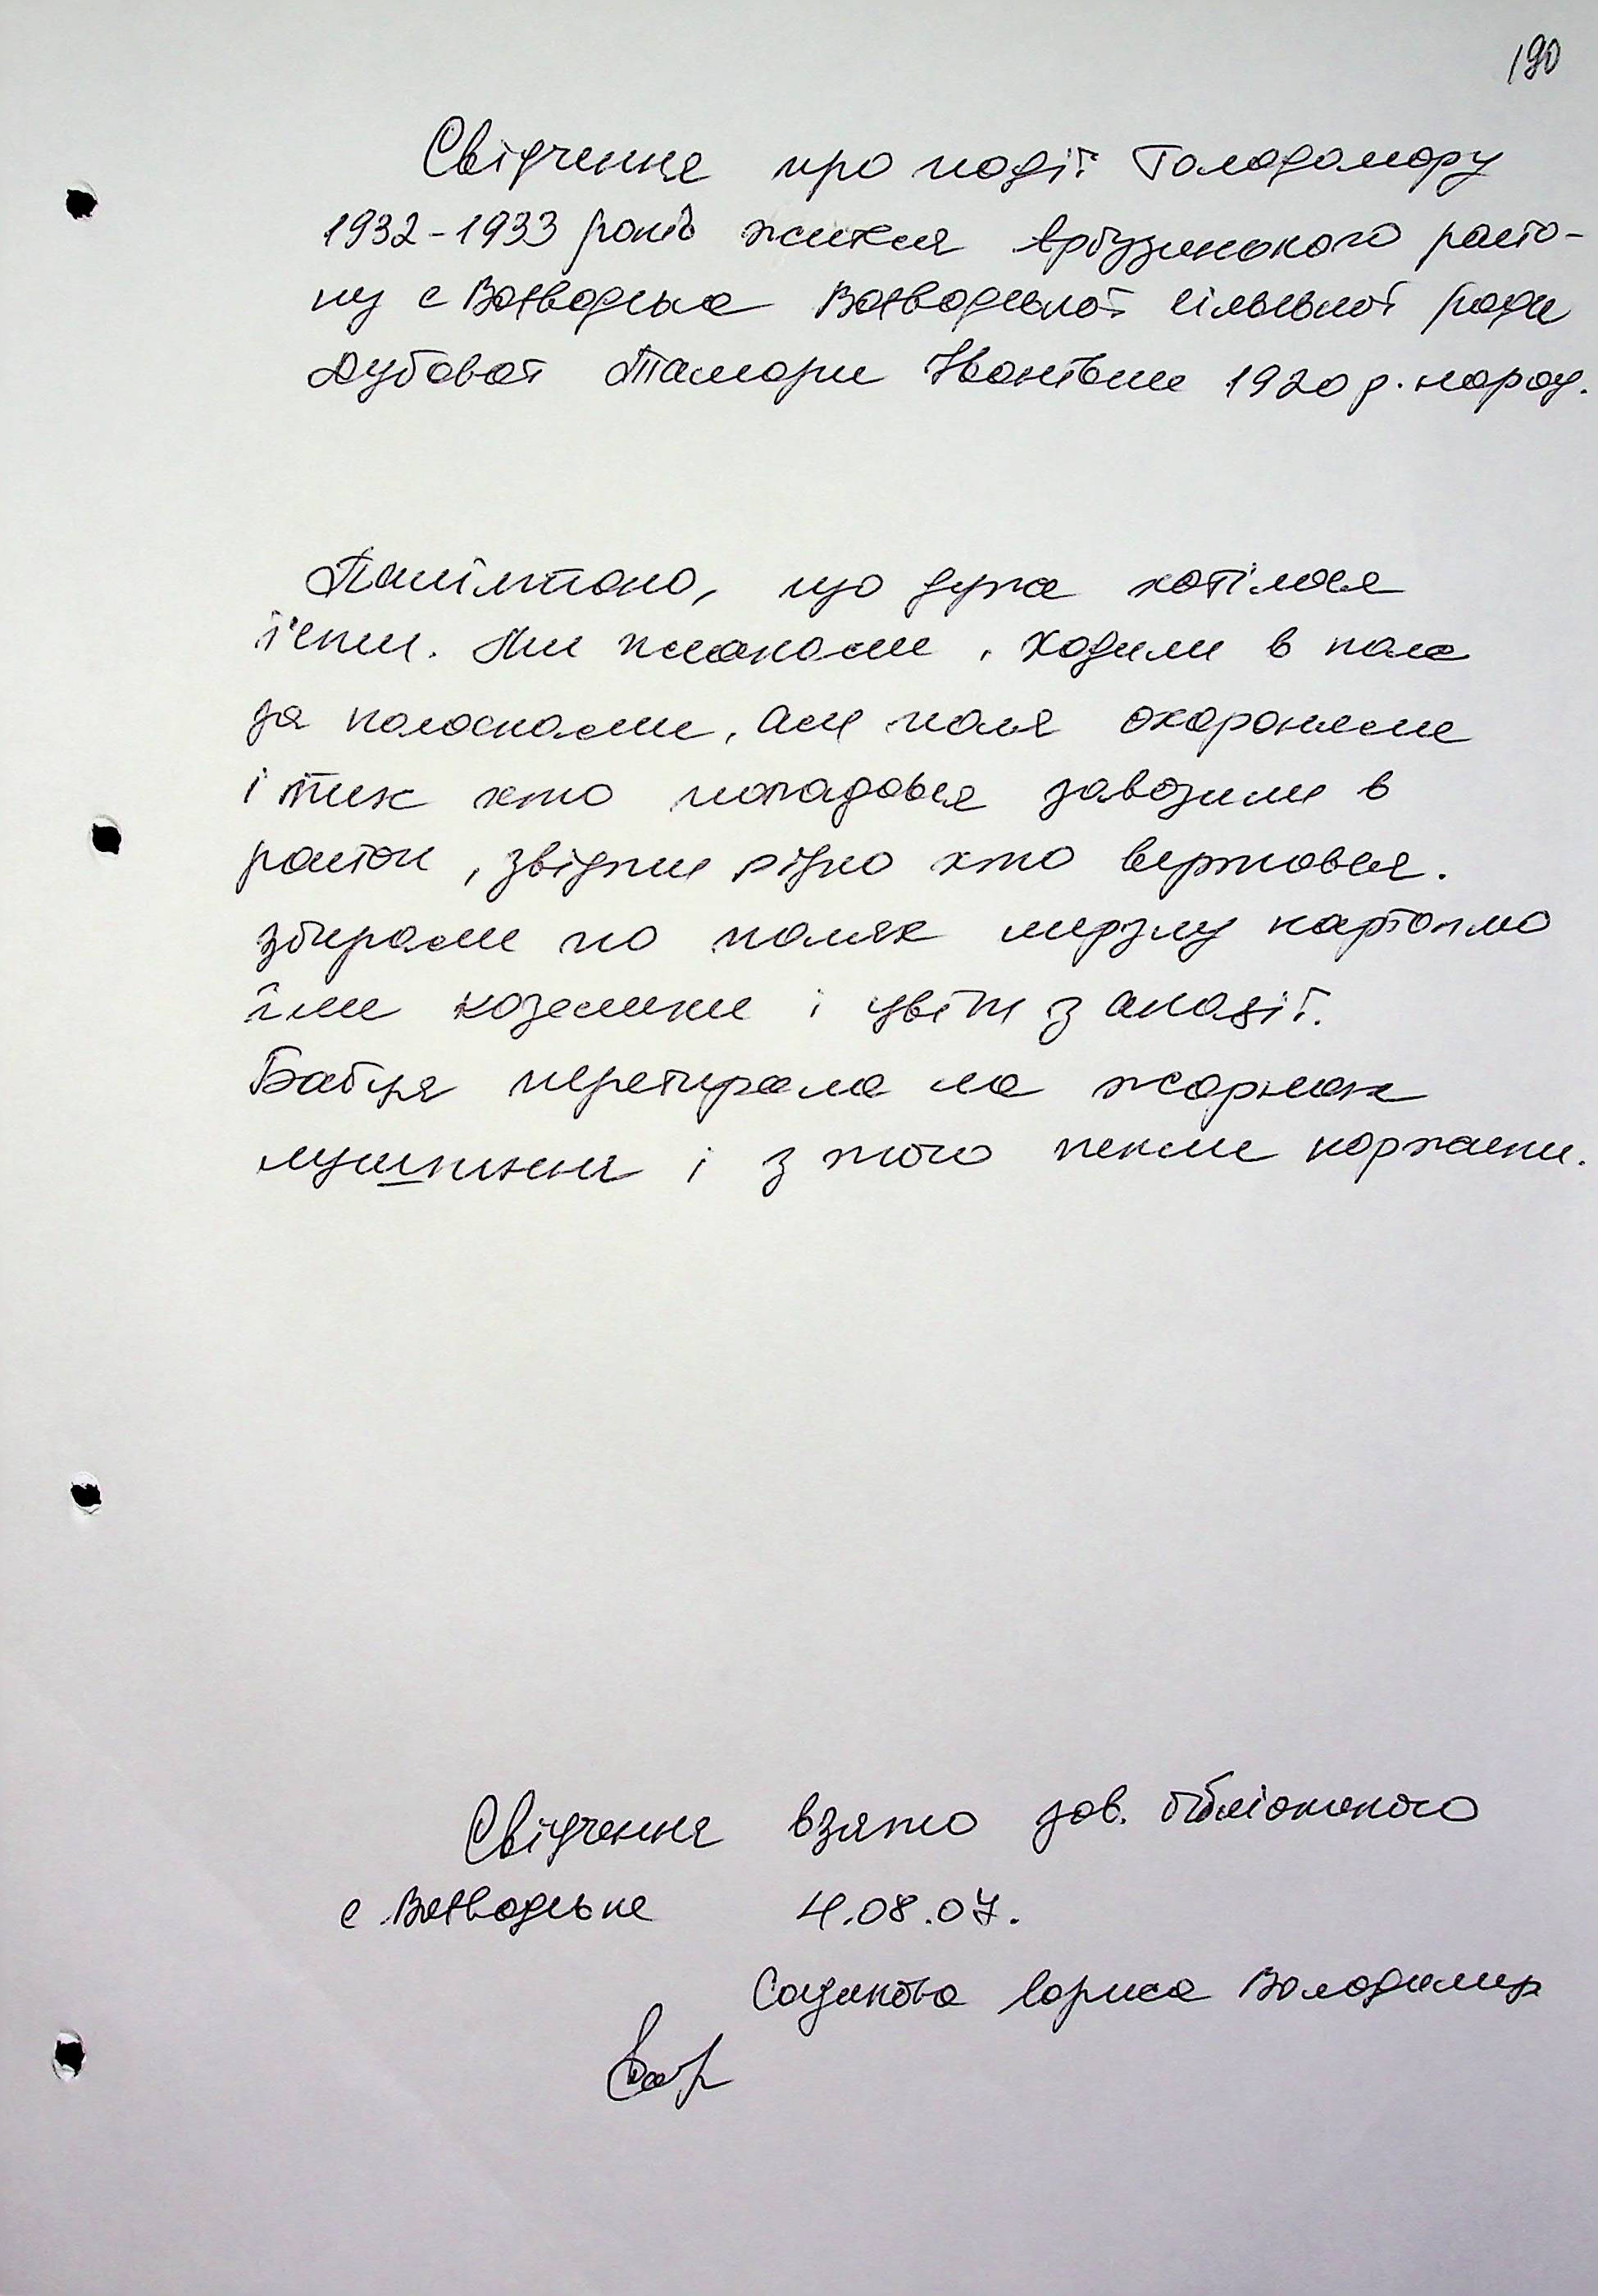 190
Свідчення про події Голодомору
1932-1933 років жителя Арбузинського райо-
ну с Воєводське Воєводської сільської ради
Дубової Тамари Іванівни 1920 р. народ.
Пам'ятаю, що дуже хотілося
їсти. Ми плакали, ходили в поле
за колосками, але поля охороняли
і тих хто попадався завозили в
район, звідти рідко хто вертався.
збирали по полях мерзлу картоплю
їли козелики і цвіт з акації.
Бабця перетирала на жорнах
лушпиння і з того пекли коржики.
Свідчення взято зав. бібліотекою
с. Воєводське 4.08.07.
Лариса Володимир